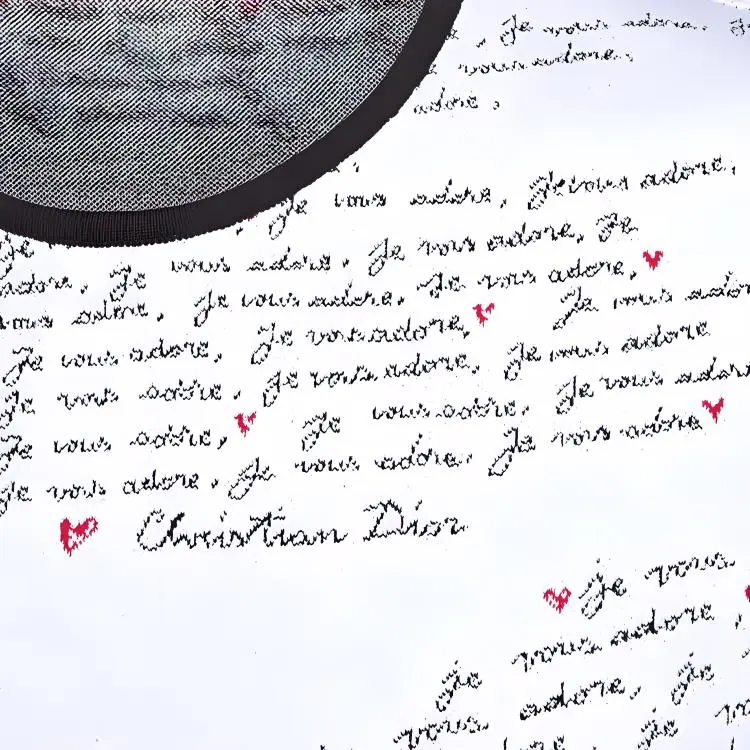 Je vous adore. Je
vous adore.
adore.
Je vous adore. Je vous adore.
Je
adore. Je vous adore. Je vous adore. Je
vous adore. Je vous adore. Je vous adore.
Je vous adore. Je vous adore. Je vous adore
Je vous adore. Je vous adore. Je vous adore
Je vous adore. Je vous adore. Je vous adore
Je vous adore. Je vous adore. Je vous adore
Christian Dior
Je vous
vous adore.
Je
vous adore. Je
adore. Je